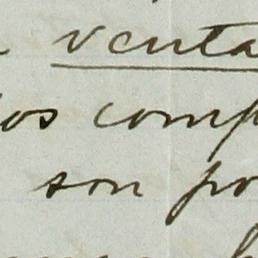 venta
os comp
son po